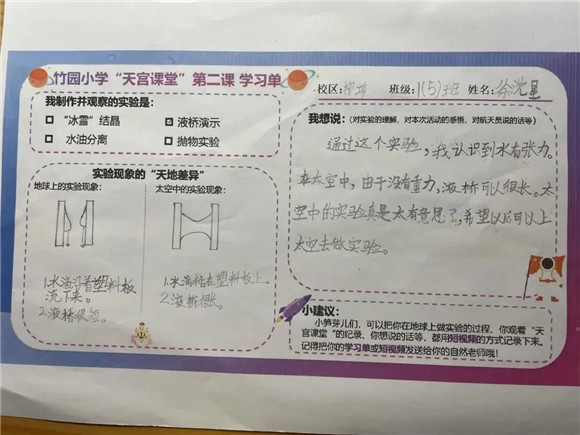 竹园小学“天宫课堂”第二课 学习单
校区: 班级: 1(5)班 姓名:
我制作并观察的实验是:
“冰雪”结晶
液桥演示
水油分离
抛物实验
实验现象的“天地差异”
地球上的实验现象:
太空中的实验现象:
1.水滴沿着塑料板
流下来。
2.液桥很短。
1.水滴粘在塑料板上。
2.液桥很长。
我想说:(对实验的理解、对本次活动的感悟、对航天员说的话等)
通过这个实验,我认识到水有张力。
在太空中,由于没有重力,液桥可以很长。太
空中的实验真是太有意思了,希望以后可以上
太空去做实验。
小建议:
小笋芽儿们,可以把你在地球上做实验的过程、你观看“天
宫课堂“的纪录、你想说的话等,都用短视频的方式记录下来。
记得把你的学习单或短视频发送给你的自然老师哦!